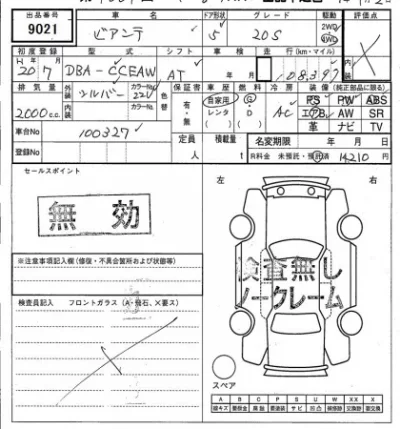 出品番号 車名 ドア形状 グレード 駆動 評価点
9021 ビアンテ 5 20S 2WD 4WD
初度登録 型式 シフト 車検 走行(km・マイル)
H 20 7 DBA-CCEAW AT 年 月 108,397
排気量 外装 シルバー カラーNo. 22V 色替 保証書 車歴 燃料 冷房 装備(純正部品に限る)
2000c.c. 内装 カラーNo. 有・無 自家用 レンタ G・D AC PS PW ABS
エアB AW SR
革 ナビ TV
車台No 100327
登録No 定員 人 積載量 t 名変期限 年 月 日
R料金 未預託・預託済 14210 円
セールスポイント
無効
※注意事項記入欄(修復・不具合箇所および状態等)
検査員記入 フロントガラス(A・飛石、X要ス)
左 右
検査無し
ノークレーム
スペア
A B C P S U W X XX